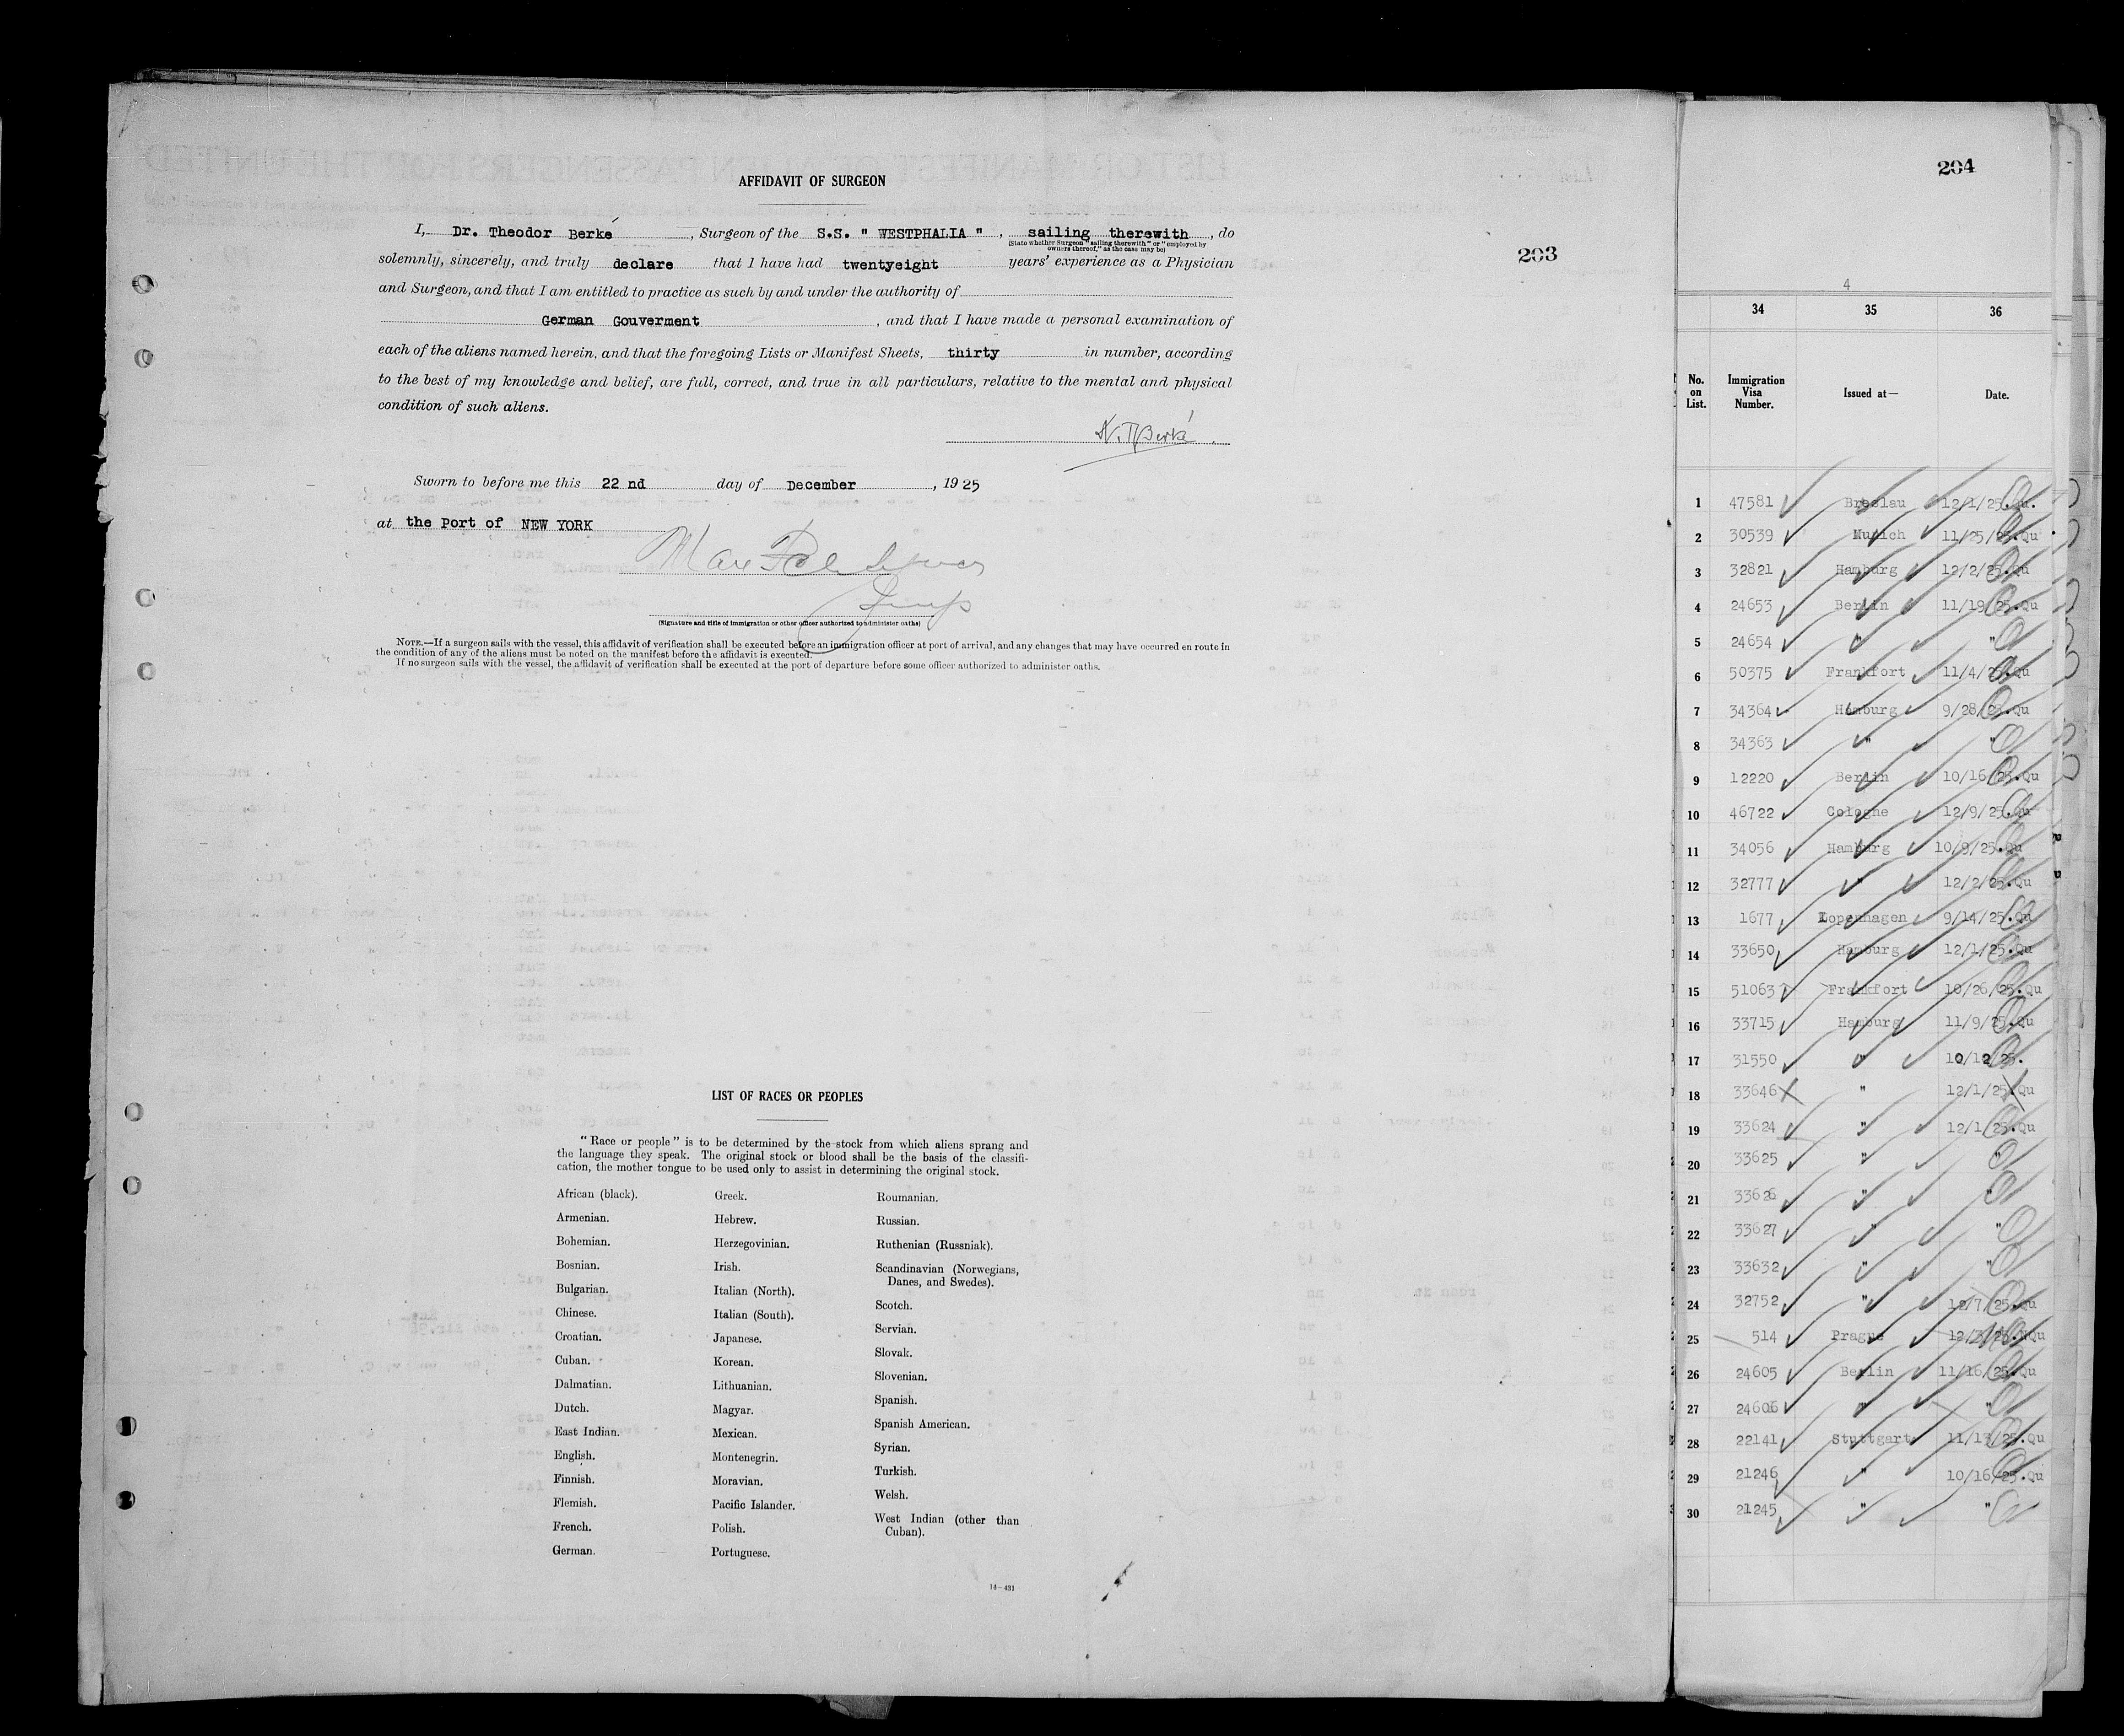 AFFIDAVIT OF SURGEON
I, Dr. Theodor Berké, Surgeon of the S.S. " WESTPHALIA " , sailing therewith, do
(State whether Surgeon "sailing therewith" or "employed by
owners thereof," as the case may be)
solemnly, sincerely, and truly declare that I have had twentyeight years' experience as a Physician
and Surgeon, and that I am entitled to practice as such by and under the authority of
German Gouverment, and that I have made a personal examination of
each of the aliens named herein, and that the foregoing Lists or Manifest Sheets, thirty in number, according
to the best of my knowledge and belief, are full, correct, and true in all particulars, relative to the mental and physical
condition of such aliens.
Sworn to before me this 22 nd day of December, 1925
at the Port of NEW YORK
(Signature and title of immigration or other officer authorized to administer oaths)
NOTE.—If a surgeon sails with the vessel, this affidavit of verification shall be executed before an immigration officer at port of arrival, and any changes that may have occurred en route in
the condition of any of the aliens must be noted on the manifest before the affidavit is executed.
If no surgeon sails with the vessel, the affidavit of verification shall be executed at the port of departure before some officer authorized to administer oaths.
203
LIST OF RACES OR PEOPLES
"Race or people" is to be determined by the stock from which aliens sprang and
the language they speak. The original stock or blood shall be the basis of the classifi-
cation, the mother tongue to be used only to assist in determining the original stock.
African (black).
Armenian.
Bohemian.
Bosnian.
Bulgarian.
Chinese.
Croatian.
Cuban.
Dalmatian.
Dutch.
East Indian.
English.
Finnish.
Flemish.
French.
German.
Greek.
Hebrew.
Herzegovinian.
Irish.
Italian (North).
Italian (South).
Japanese.
Korean.
Lithuanian.
Magyar.
Mexican.
Montenegrin.
Moravian.
Pacific Islander.
Polish.
Portuguese.
Roumanian.
Russian.
Ruthenian (Russniak).
Scandinavian (Norwegians,
Danes, and Swedes).
Scotch.
Servian.
Slovak.
Slovenian.
Spanish.
Spanish American.
Syrian.
Turkish.
Welsh.
West Indian (other than
Cuban).
14—431
204
4
34 35 36
No. on List. Immigration Visa Number. Issued at— Date.
1 47581 Breslau 12/1/25.Qu.
2 30539 Munich 11/25/25.Qu
3 32821 Hamburg 12/2/25.Qu
4 24653 Berlin 11/19/25.Qu
5 24654 " "
6 50375 Frankfort 11/4/25.Qu
7 34364 Hamburg 9/28/25.Qu
8 34363 " "
9 12220 Berlin 10/16/25.Qu
10 46722 Cologne 12/9/25.Qu
11 34056 Hamburg 10/9/25.Qu
12 32777 " 12/2/25.Qu
13 1677 Kopenhagen 9/14/25.Qu
14 33650 Hamburg 12/1/25.Qu
15 51063 Frankfort 10/26/25.Qu
16 33715 Hamburg 11/9/25.Qu
17 31550 " 10/12/25.
18 33646 " 12/1/25.Qu
19 33624 " 12/1/25.Qu
20 33625 " "
21 33626 " "
22 33627 " "
23 33632 " "
24 32752 " 12/7/25.Qu
25 514 Prague 12/3/25.NQu
26 24605 Berlin 11/16/25.Qu
27 24606 " "
28 22141 Stuttgart 11/13/25.Qu
29 21246 " 10/16/25.Qu
30 21245 " "